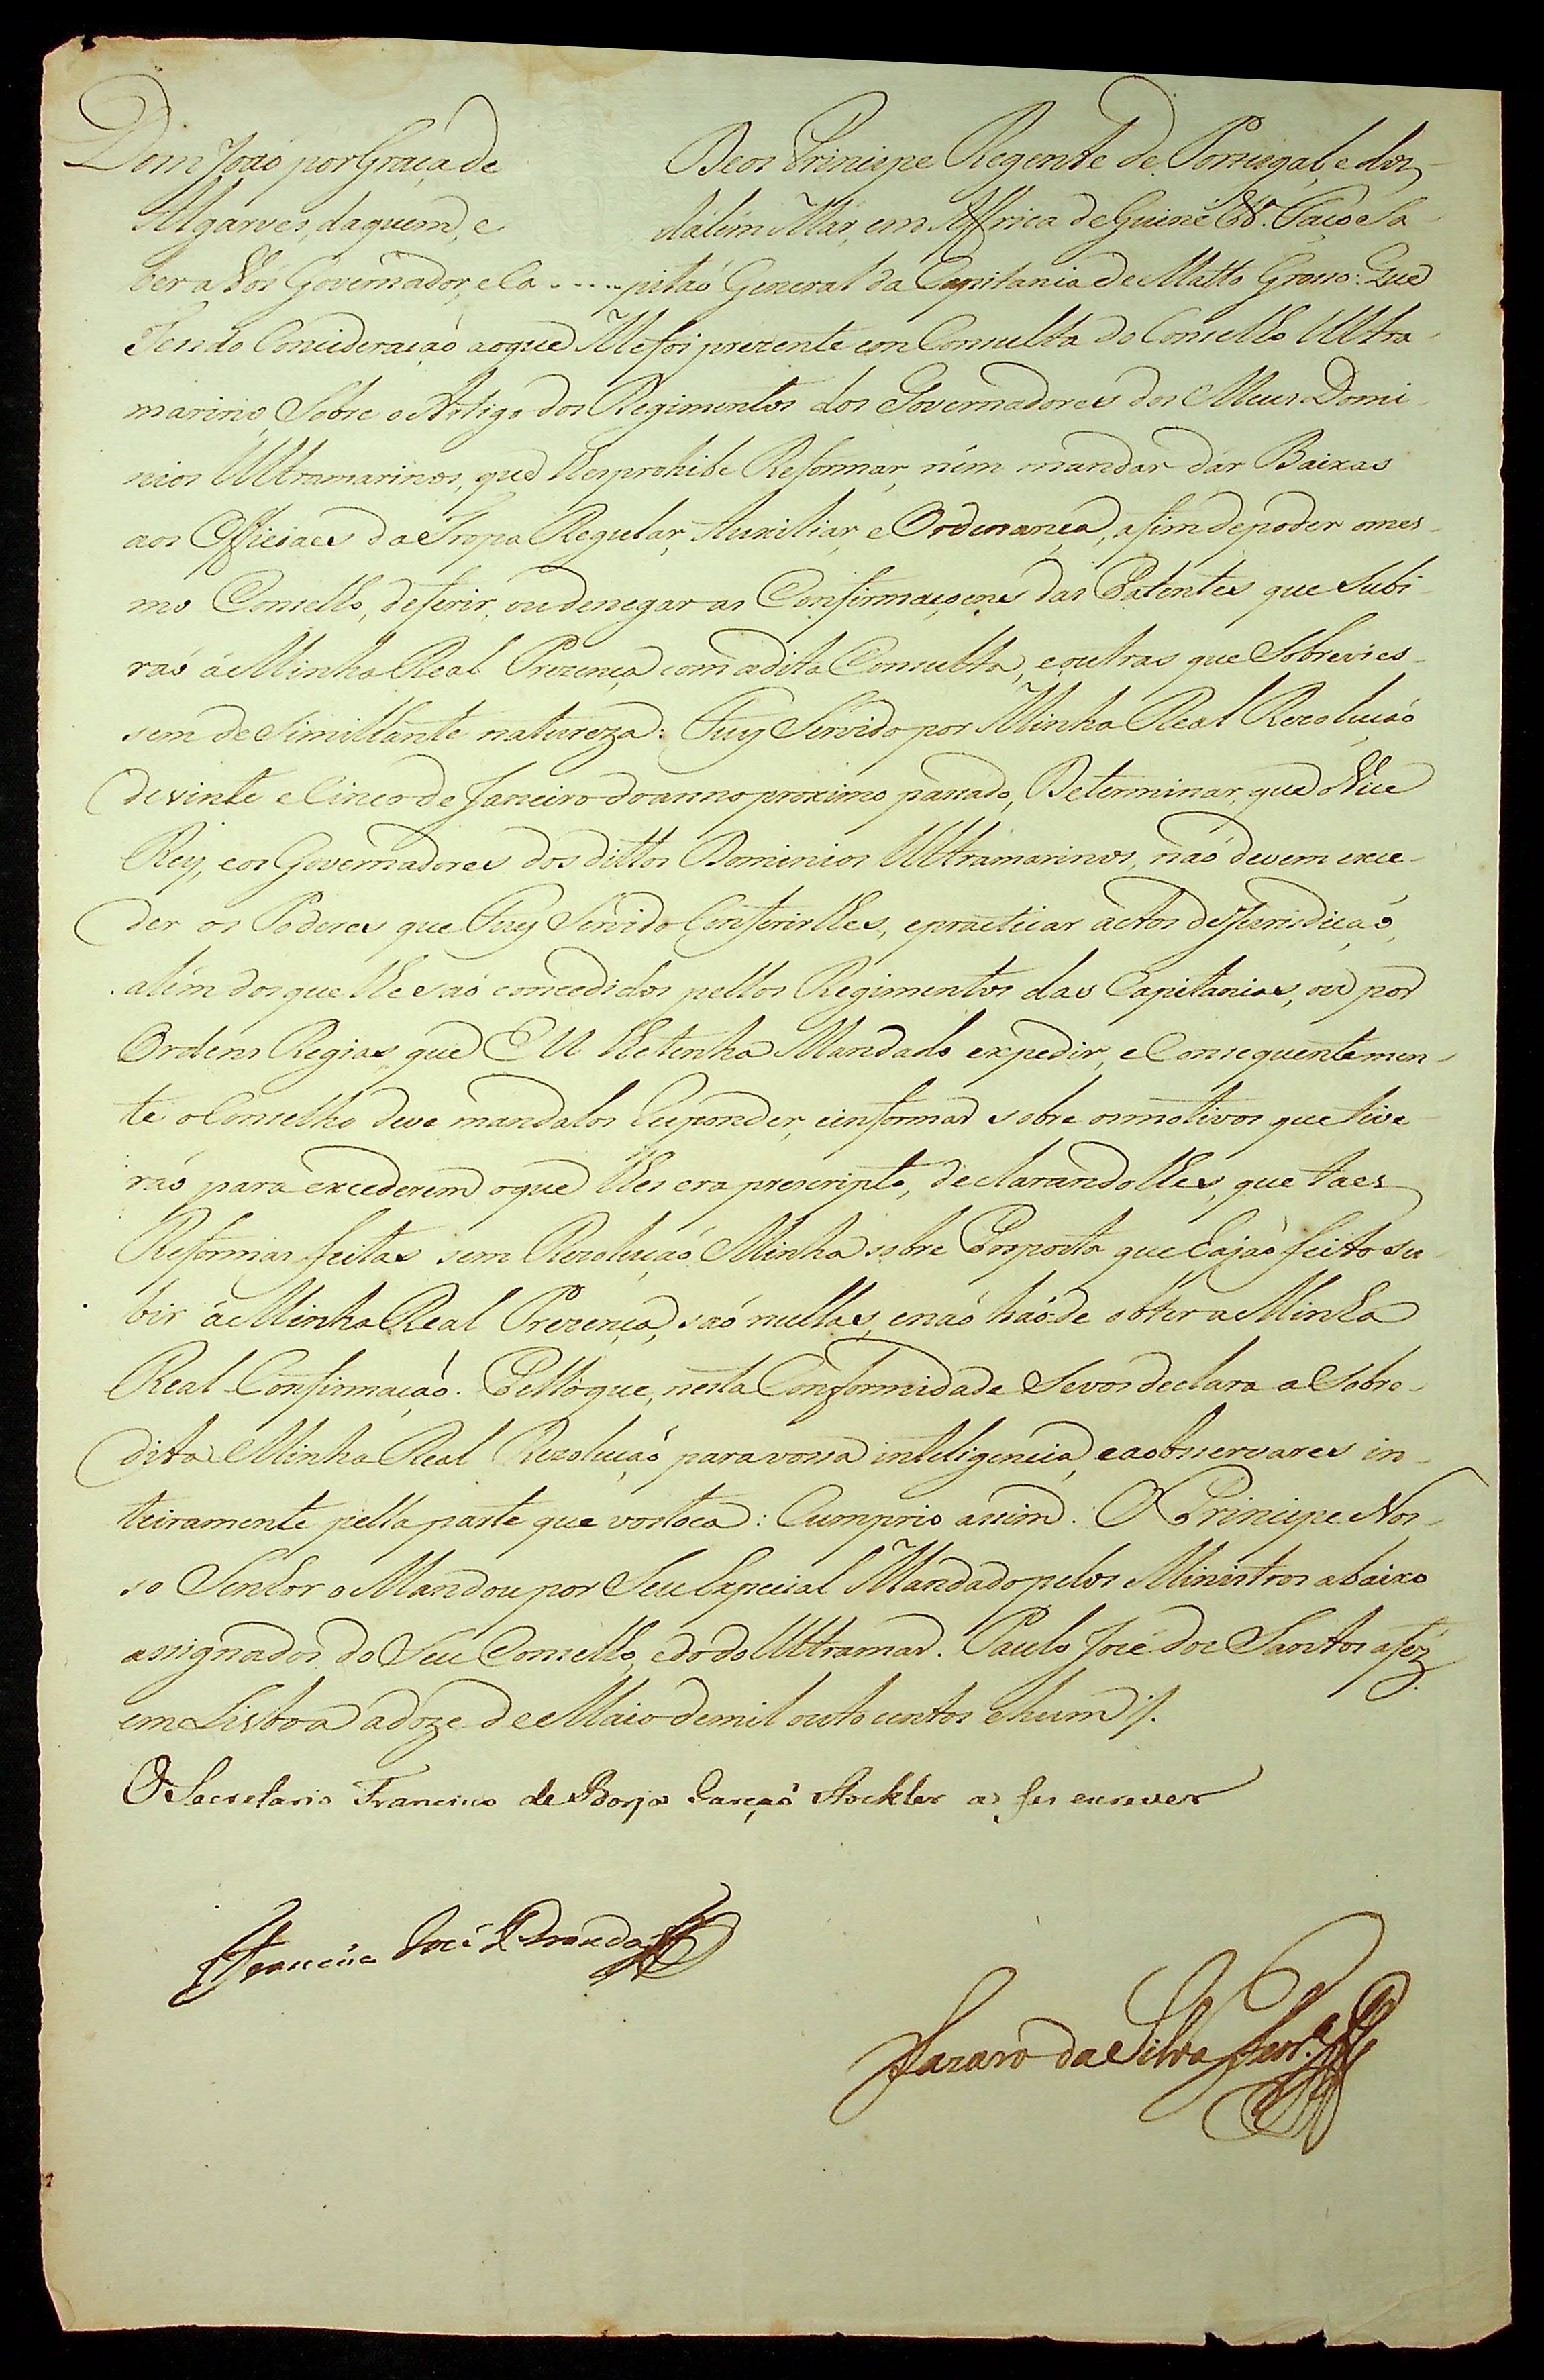 Dom João por Graça de Deos Principe Regente de Portugal, e dos
Algarves, daquem, e dalém Mar, em Affrica de Guiné &ª. Faço Sa-
ber a Vos Governador, e Ca-.....pitaõ General da Capitania de Matto Grosso: Que
Tendo Concideraçaõ aoque Me foi prezente em Consulta do Consello Ultra-
marino, Sobre o Artigo dos Regimentos dos Governadores dos Meus Domi-
nios Ultramarinos, que lhes prohibe Reformar, nem mandar dar Baixas
aos Officiaes da Tropa Regular, Auxiliar, e Ordenança, afim de poder o mes-
mo Consello, deferir, ou denegar as Confirmaçoens das Patentes que Subi-
raõ á Minha Real Prezença com a dita Consulta, e outras que Sobrevies-
sem de Similhante natureza: Fuy Servido por Minha Real Rezoluçaõ
de vinte e Cinco de Janeiro do anno proximo passado, Determinar, que o Vice
Rey, e os Governadores dos dittos Dominios Ultramarinos, naõ devem exce-
der os Poderes que Fuy Servido Conferirlhes, e practicar actos de Jurisdicaõ,
alem dos que lhe saõ concedidos pellos Regimentos das Capitanias, ou por
Ordens Regias que EU lhe tenha Mandado expedir, e Consequentemen-
te o Conselho deve mandalos Responder, e informar sobre os motivos que tive-
raõ para excederem o que lhes era prescripto, declarandolhes, que taes
Reformas feitas sem Rezoluçaõ Minha sobre Proposta que hajaõ feito su-
bir á Minha Real Prezença, saõ nullas, e naõ haõ de obter a Minha
Real Confirmaçaõ. Pello que, nesta Conformidade Se vos declara a Sobre-
dita Minha Real Rezoluçaõ para vossa inteligencia, e a observares in-
teiramente pella parte que vos toca: Cumprio assim. O Principe Nos-
so Senhor o Mandou por Seu Especial Mandado pelos Ministros abaixo
assignados do Seu Consello, e do do Ultramar. Paulo José dos Santos a fez
em Lisboa a doze de Maio de mil outo centos e hum //.
O Secretario Francisco de Borja Garçaõ Stockler a fes escrever
Francisco José Brandaõ
Lazaro da Silva Ferrª